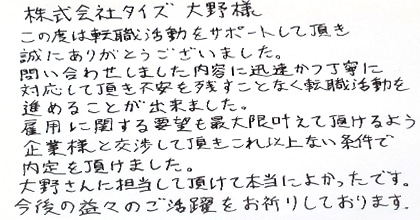 株式会社タイズ 大野様
この度は転職活動をサポートして頂き
誠にありがとうございました。
問い合わせしました内容に迅速かつ丁寧に
対応して頂き不安を残すことなく転職活動を
進めることが出来ました。
雇用に関する要望も最大限叶えて頂けるよう
企業様と交渉して頂きこれ以上ない条件で
内定を頂けました。
大野さんに担当して頂けて本当によかったです。
今後の益々のご活躍をお祈りしております.